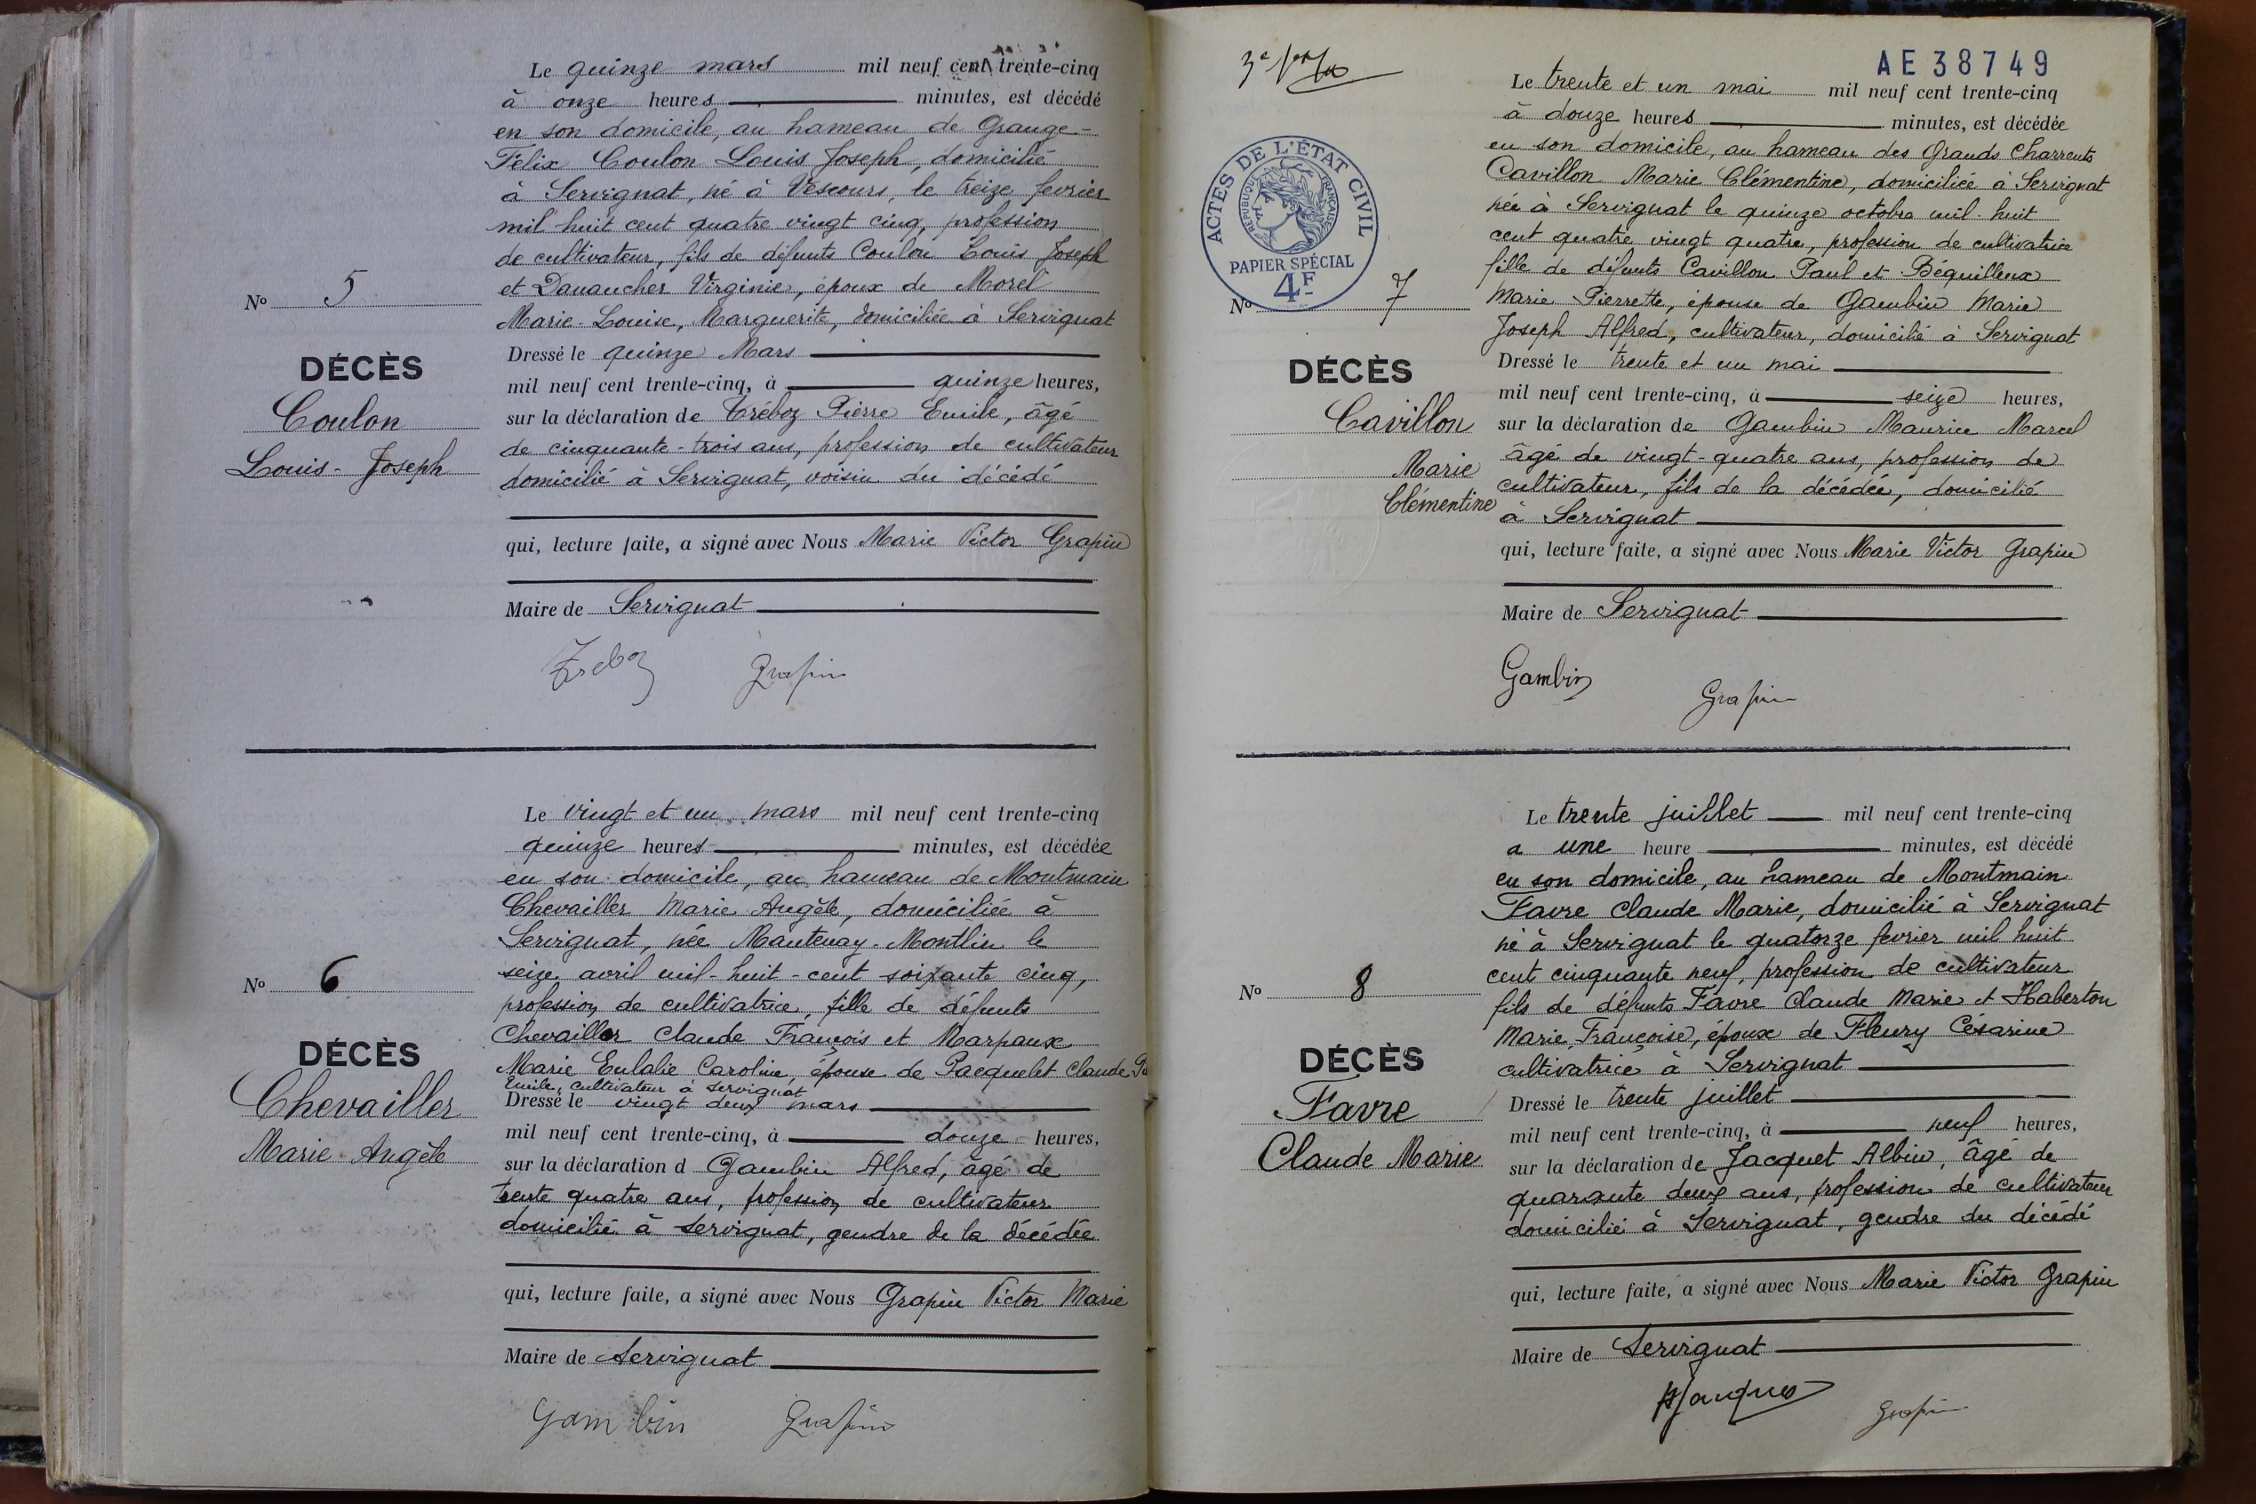 Le quinze mars mil neuf cent trente-cinq
à onze heures minutes, est décédé
en son domicile, au hameau de Grange-
Félix Coulon Louis Joseph, domicilié
à Servignat, né à Vescours, le treize fevrier
mil huit cent quatre vingt cinq, profession
de cultivateur, fils de défunts Coulon Louis Joseph
et Danancher Virginie, époux de Morel
Marie-Louise, Marguerite, domiciliée à Servignat
No 5
DÉCÈS
Coulon
Louis-Joseph
Dressé le quinze Mars
mil neuf cent trente-cinq, à quinze heures,
sur la déclaration de Tréboz Pierre Emile, âgé
de cinquante-trois ans, profession de cultivateur
domicilié à Servignat, voisin du décédé
qui, lecture faite, a signé avec Nous Marie Victor Grapin
Maire de Servignat
Treboz Grapin
Le vingt et un mars mil neuf cent trente-cinq
quinze heures minutes, est décédée
en son domicile, au hameau de Montmain
Chevailler Marie Angèle, domiciliée à
Servignat, née Mantenay-Montlin le
seize avril mil-huit-cent soixante cinq,
profession de cultivatrice, fille de défunts
Chevailler Claude François et Marpaux
Marie Eulalie Caroline, épouse de Pacquelet Claude
Emile, cultivateur à Servignat
No 6
DÉCÈS
Chevailler
Marie Angèle
Dressé le vingt deux mars
mil neuf cent trente-cinq, à douze heures,
sur la déclaration d Gambin Alfred, âgé de
trente quatre ans, profession de cultivateur
domicilié à Servignat, gendre de la décédée
qui, lecture faite, a signé avec Nous Grapin Victor Marie
Maire de Servignat
Gambin Grapin
AE 38749
ACTES DE L'ÉTAT CIVIL
RÉPUBLIQUE FRANÇAISE
PAPIER SPÉCIAL
4F
Le trente et un mai mil neuf cent trente-cinq
à douze heures minutes, est décédée
en son domicile, au hameau des Grands Charrents
Cavillon Marie Clémentine, domiciliée à Servignat
née à Servignat le quinze octobre mil-huit
cent quatre vingt quatre, profession de cultivatrice
fille de défunts Cavillon Paul et Béquilleux
Marie Pierrette, épouse de Gambin Marie
Joseph Alfred, cultivateur, domicilié à Servignat
No 7
DÉCÈS
Cavillon
Marie
Clémentine
Dressé le trente et un mai
mil neuf cent trente-cinq, à seize heures,
sur la déclaration de Gambin Maurice Marcel
âgé de vingt-quatre ans, profession de
cultivateur, fils de la décédée, domicilié
à Servignat
qui, lecture faite, a signé avec Nous Marie Victor Grapin
Maire de Servignat
Gambin Grapin
Le trente juillet mil neuf cent trente-cinq
a une heure minutes, est décédé
en son domicile, au hameau de Montmain
Favre Claude Marie, domicilié à Servignat
né à Servignat le quatorze fevrier mil huit
cent cinquante neuf, profession de cultivateur
fils de défunts Favre Claude Marie et Haberton
Marie Françoise, époux de Fleury Césarine
cultivatrice à Servignat
No 8
DÉCÈS
Favre
Claude Marie
Dressé le trente juillet
mil neuf cent trente-cinq, à neuf heures,
sur la déclaration de Jacquet Albin, âgé de
quarante deux ans, profession de cultivateur
domicilié à Servignat, gendre du décédé
qui, lecture faite, a signé avec Nous Marie Victor Grapin
Maire de Servignat
Grapin